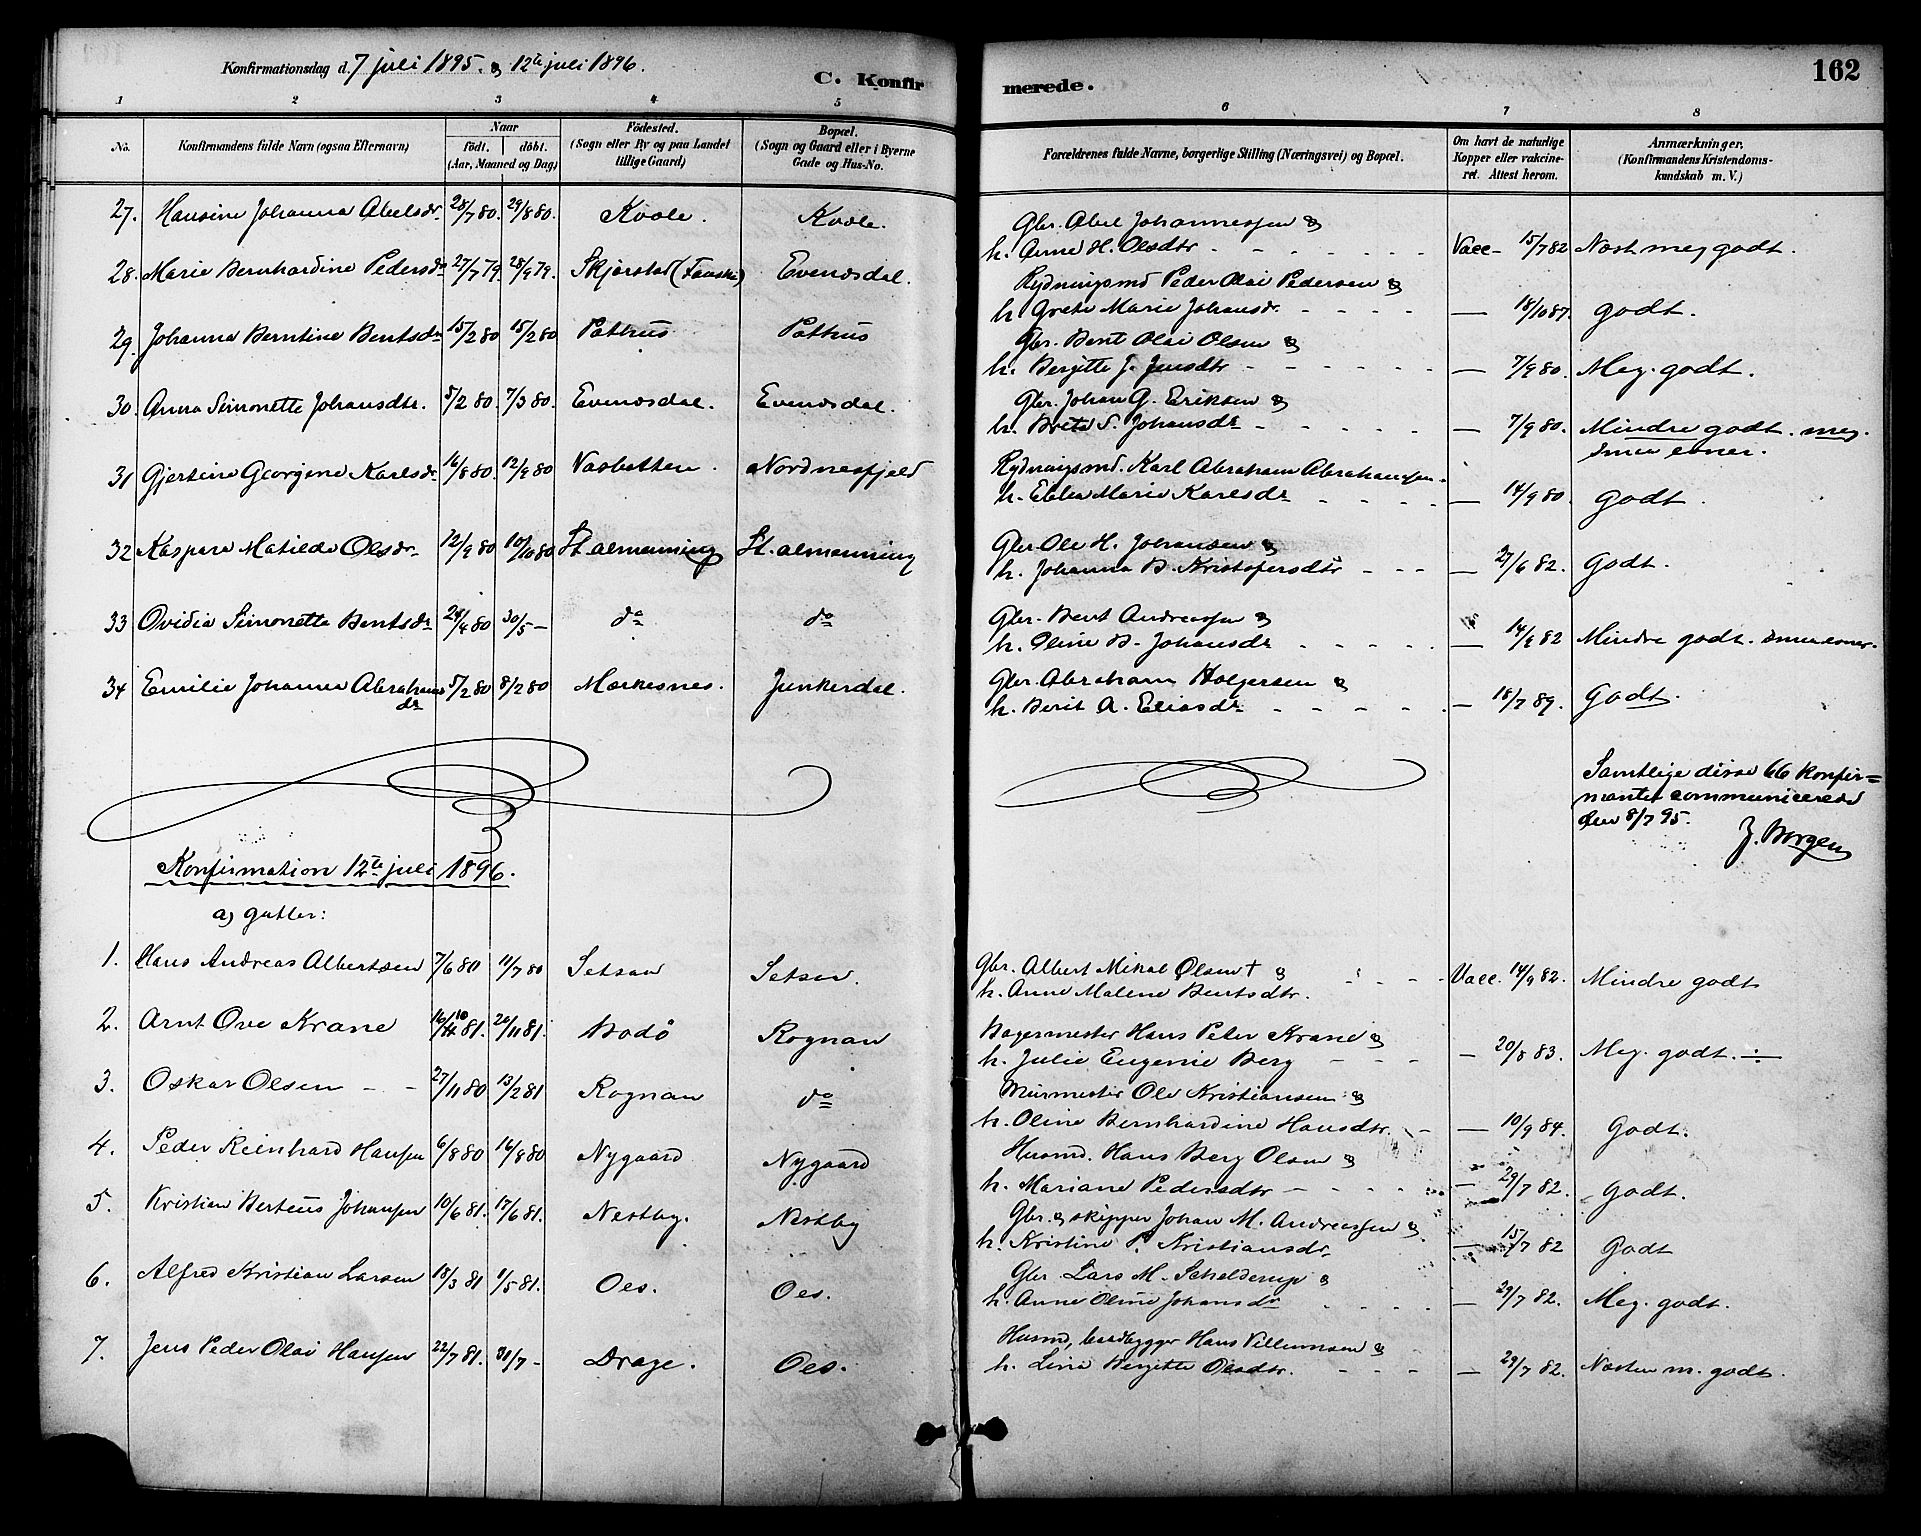 Konfirmationsdag d. 7 juli 1895. & 12te juli 1896.
C. Konfirmerede.
162
1 2 3 4 5 6 7 8
No.
Konfirmandens fulde Navn (ogsaa Efternavn)
Naar
født. døbt.
(Aar, Maaned og Dag)
Födested.
(Sogn eller By og paa Landet
tillige Gaard)
Bopæl.
(Sogn og Gaard eller i Byerne
Gade og Hus-No.
Forældrenes fulde Navne, borgerlige Stilling (Næringsvei) og Bopæl.
Om havt de naturlige
Kopper eller vakcine-
ret. Attest herom.
Anmærkninger.
(Konfirmandens Kristendoms-
kundskab m. V.)
27. Hansine Johanna Abelsdr. 28/7 80. 29/8 80. Kvæle. Kvæle. Gbr. Abel Johannessen &
h. Anne H. Olsdtr - - - - - - Vacc- 15/7 82 Næst meg godt.
28. Marie Bernhardine Pedersdr 27/7 79. 28/9 79. Skjerstad (Fauske) Evenæsdal. Rydningsmd Peder Olai Pedersen &
h. Grete Marie Johansdr. - - - - — 18/10 87. godt.
29. Johanna Berntine Bentsdr 15/2 80 15/2 80 Pothus Pothus Gbr. Bent Olai Olsen &
h. Bergitte J. Jensdtr - - - - - - — 7/9 80. Meg. godt.
30. Anna Simonette Johansdtr. 5/2 80. 7/3 80. Evenæsdal. Evenæsdal. Gbr. Johan G. Eriksen &
h. Brita S. Johansdr - - - - - — 7/9 80. Mindre godt. meg.
smaa evner.
31 Gjertine Georgine Karlsdr 16/8 80. 12/9 80 Vasbotten. Nordnesfjeld Rydningsmd. Karl Abraham Abrahamsen.
h. Ebba Marie Karlsdr - - - - — 14/9 80. godt.
32 Kaspara Matilde Olsdr 12/9 80 10/10 80 St. almenning St. almenning Gbr. Ole H. Johansen &
h. Johanna B. Kristofersdtr - - - — 27/6 82. Godt.
33 Ovidia Simonette Bentsdr 24/4 80 30/5 — do do Gbr. Bent Andreassen &
h. Oline B. Johansdr - - - - - — 14/9 82 Mindre godt. smaa evner.
34 Emilie Johanna Abrahamsdr 5/2 80 8/2 80 Mørkesnes. Junkerdal. Gbr. Abraham Holgersen &
h. Berit A. Eliasdr - - - - - — 18/7 89. Godt.
Samtlige disse 66 konfir=
manter communicerede
den 8/7 95.
J. Borgen
Konfirmation 12te juli 1896.
a) gutter:
1. Hans Andreas Albertsen 7/6 80 11/7 80 Setsaa Setsaa. Gbr. Albert Mikal Olsen † &
h. Anne Malene Bentsdtr. - - - Vacc. 14/9 82. Mindre godt
2. Arnt Ove Krane 16/10 81. 20/11 81. Bodø Rognan Bagermester Hans Peter Krane &
h. Julie Eugenie Berg - - - — 20/8 83. Meg. godt. ÷
3. Oskar Olsen - - 27/11 80 13/2 81 Rognan do Murmester Ole Kristiansen &
h. Oline Bernhardine Hansdtr. - - — 10/9 84. Godt.
4. Peder Reinhard Hansen 6/8 80 16/8 80 Nygaard Nygaard Husmd. Hans Berg Olsen &
h. Mariane Pedersdtr - - - - — 29/7 82. Godt.
5. Kristian Berteus Johansen 10/6 81. 17/6 81. Nestby. Nestby Gbr. & skipper Johan M. Andreassen &
h. Kristine P. Kristiansdr — 15/7 82 Godt
6. Alfred Kristian Larsen 18/3 81 1/5 81. Oes. Oes. Gbr Lars M. Schelderup &
h. Anne Oline Johansdr - - - — 29/7 82. Meg. godt.
7. Jens Peder Olai Hansen 22/7 81. 31/7 - Drage. Oes. Husmd, baadbygger Hans Villumsen &
h. Lina Bergitte Olsdtr. - - - — 29/7 82. Næsten m. godt.